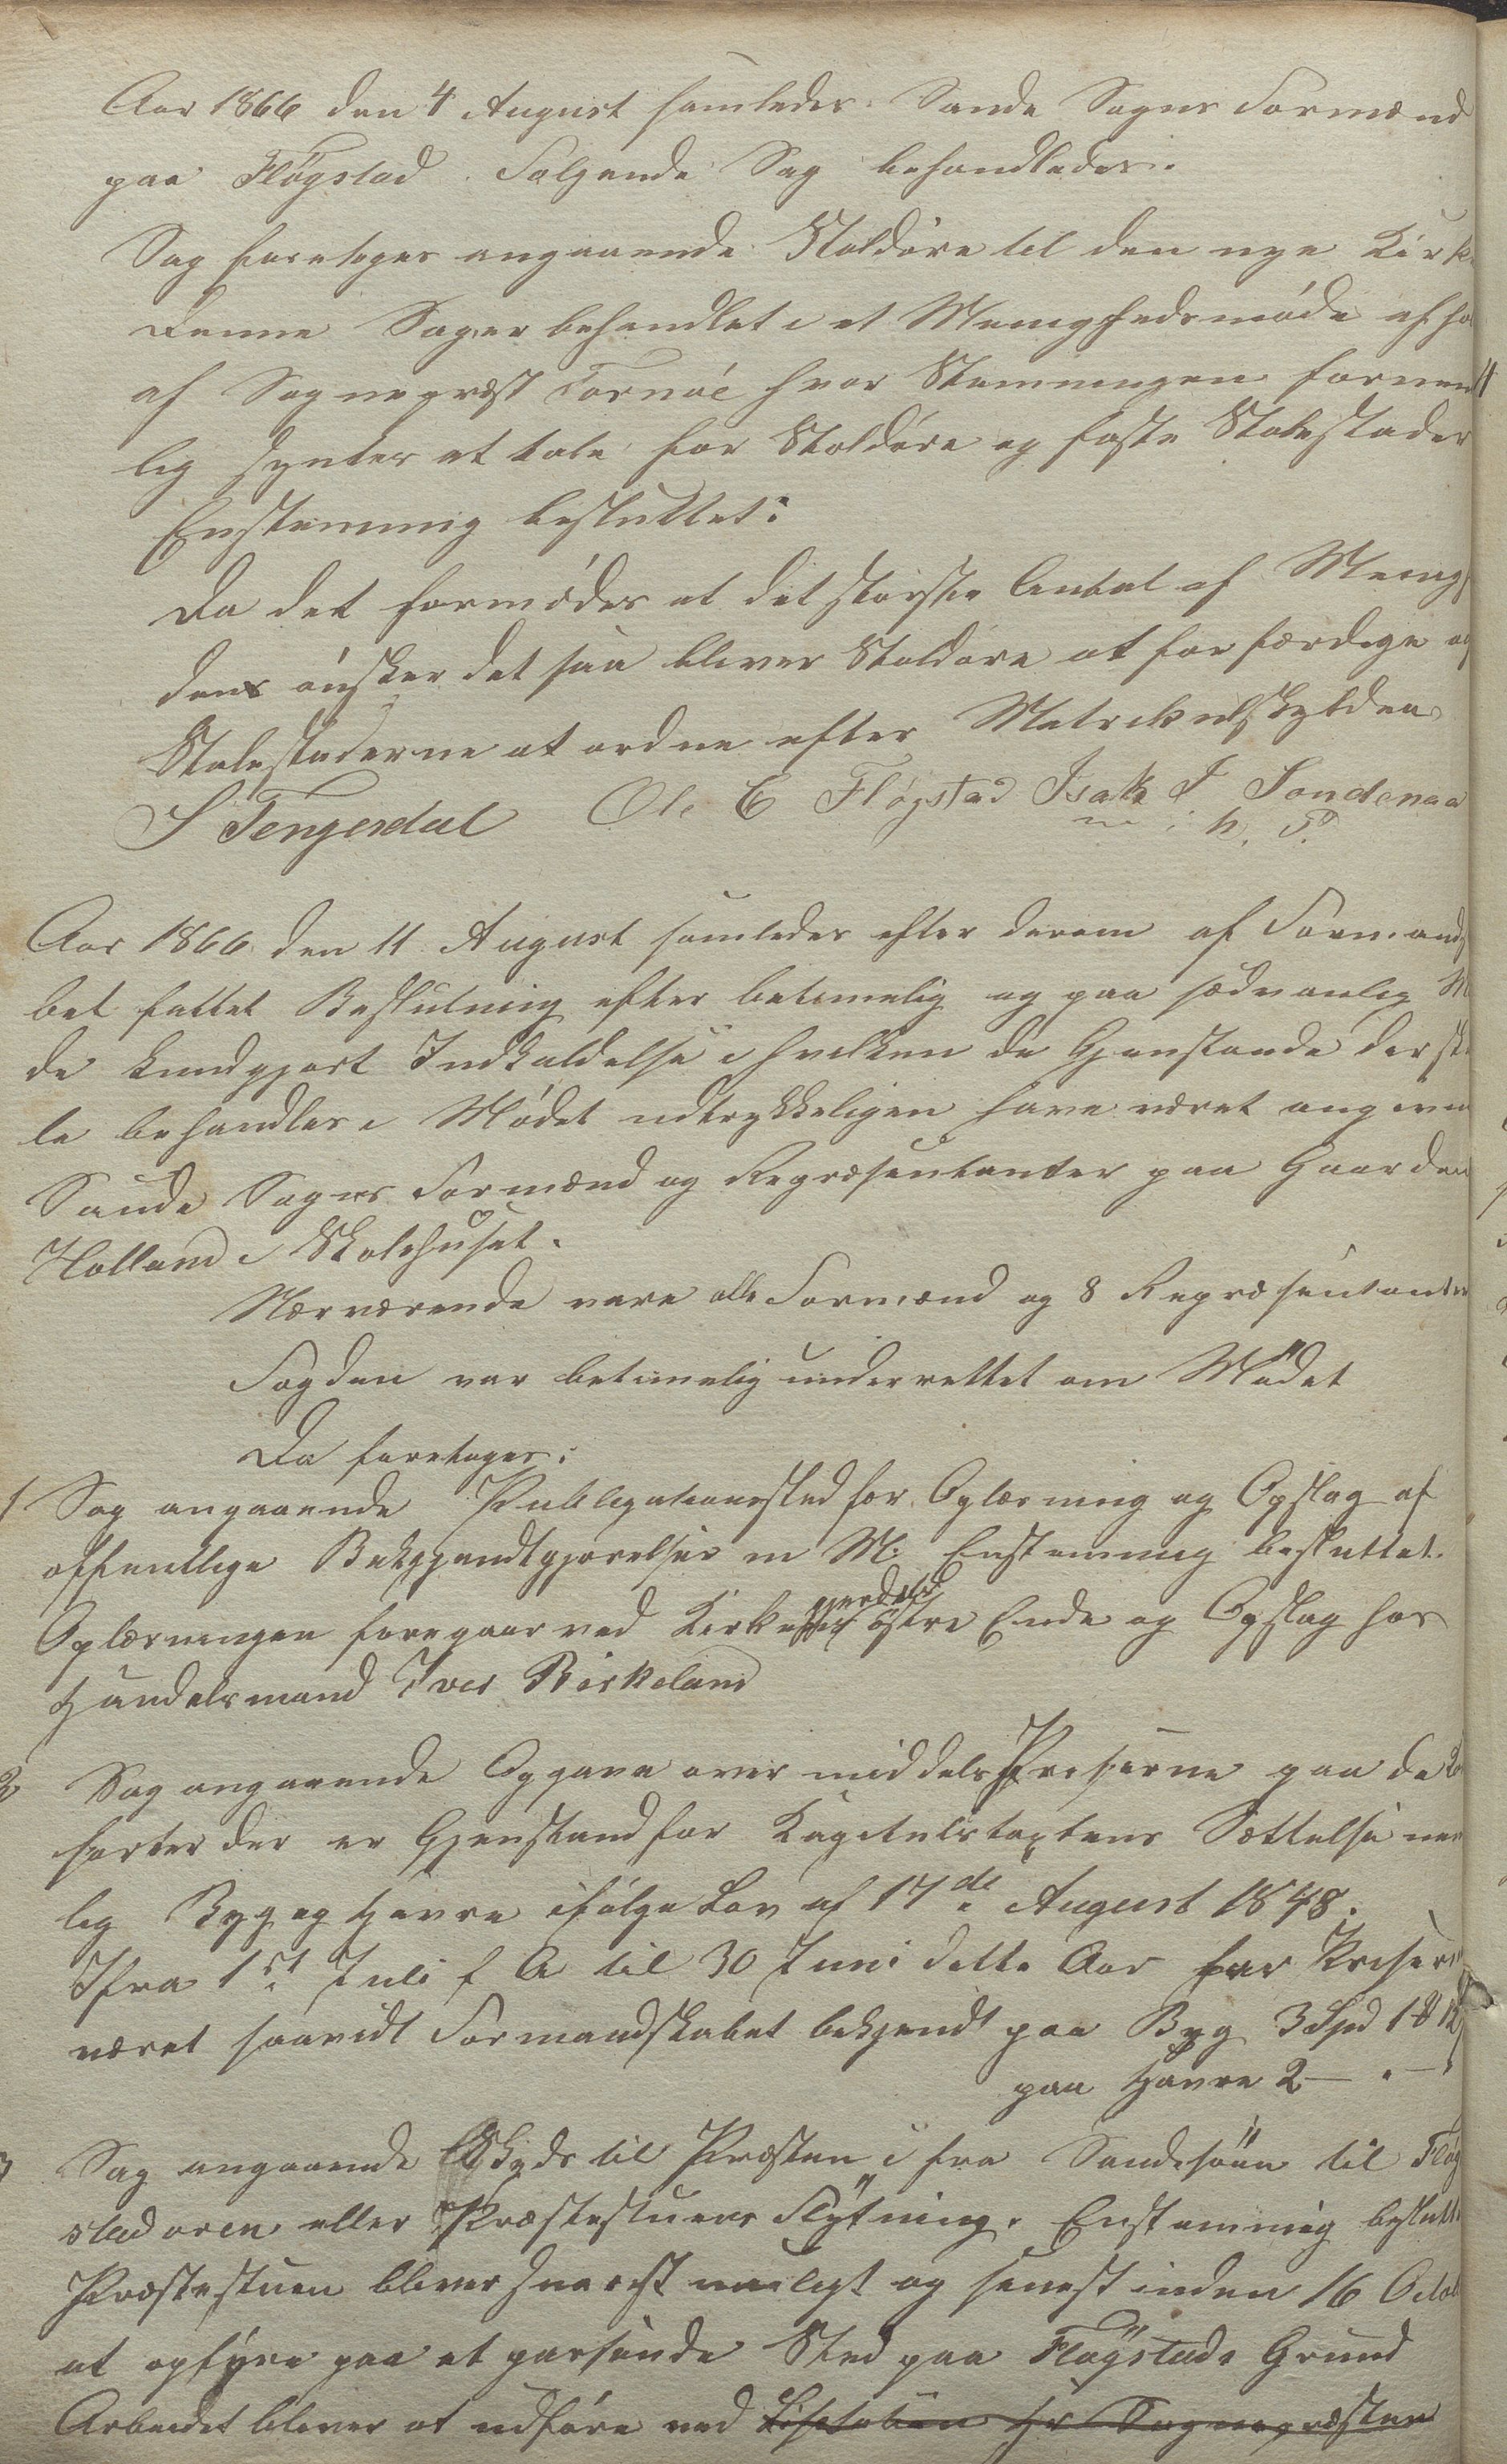 Aar 1866 den 4 August samledes Sande Sogns Formænd
paa Fløgstad. Følgende Sag behandledes.
Sag foretoges angaaende Stoldøre til den nye Kirke
denne Sag er behandlet i et Menighedsmøde afho
af Sogneprest Tornøe hvor Stemningen fornem
lig syntes at tale for Stoldøre og faste Stolestader
Enstemmig besluttet:
Da det formodes at det største Antal af Menig
den ønsker det saa bliver Stoldøre at forfærdige og
Stolestaderne at ordne efter Matrikulskylden
S Tengesdal Ole E Fløgstad Isak I Sondenaa
m. i. h. P.
Aar 1866 den 11 August samledes efter derom af Formands
bet fattet Beslutning efter betimelig og paa sædvanlig M
de kundgjort Indkaldelse i hvilken de Gjenstande der sk
le behandles i Mødet udtrykkeligen have været angivn
Saude Sogns Formænd og Repræsentanter paa Gaarden
Tlolland i Skolehuset.
Nærværende vare alle Formænd og 8 Repræsentanter
Fogden var betimelig underrettet om Mødet
Da foretoges:
1 Sag angaaende Publicationssted for Oplæsning og Opslag af
offentlige Bekjendtgjørelser m M: Enstemmig besluttet.
Oplæsningen foregaar ved Kirkegjerdets østre Ende og Opslag hos
Handelsmand Iver Birkeland
2 Sag angaaende Opgave over middels Priserne paa de
sorter der er Gjenstand for Kapitelstaxtens Sættelse nem
lig Byg og Havre ifølge Lov af 17de August 1848.
Ifra 1st Juli f A til 30 Juni dette Aar har Priserne
været saavidt Formandskabet bekjendt paa Byg 3 Spd 1 # 12
paa Havre 2 — " —
3 Sag angaaende Skyds til Præsten ifra Sandesøen til Fløg
stadøren eller Præstestuens Flytning. Enstemmig beslutte
Præstestuen bliver snarest muligt og senest inden 16 Octob
at opføre paa et passende Sted paa Fløgstads Grund
Arbeidet bliver at udføre ved Hr Sognepræsten